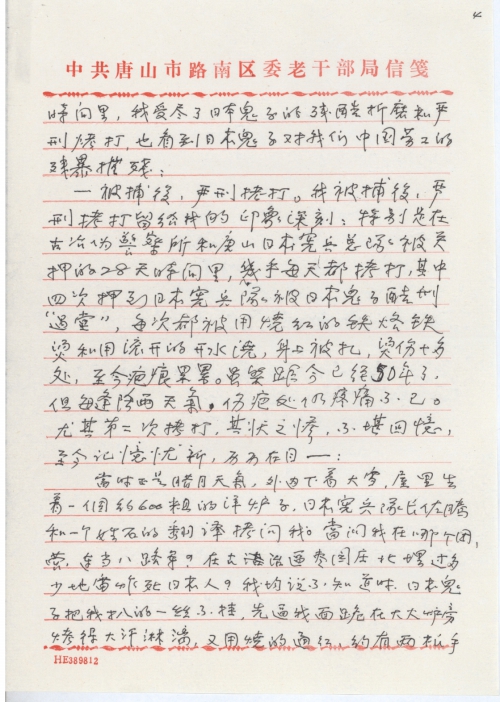 4
中共唐山市路南区委老干部局信笺
时间里，我受尽了日本鬼子的残酷折磨和严
刑烤打，也看到日本鬼子对我们中国劳工的
残暴摧残：
一被捕後，严刑拷打。我被捕後，严
刑拷打留给我的印象深刻：特别是在
古冶伪警察所和唐山日本宪兵总队被关
押的28天时间里，几乎每天都拷打，其中
四次押到日本宪兵队被日本鬼子酷刑
"过堂"，每次都被用烧红的铁烙铁
烫和用滚开的开水浇，身上被扎，烫伤十多
处，至今疤痕累累。虽然距今已经50年了，
但每逢阴雨天气。伤疤处仍疼痛不已。
尤其第二次拷打，其状之惨，不堪回境，
至今记忆尤新，历历在目——：
当时正是腊月天气，外边下着大雪，屋里生
着一个约600粗的洋炉子，日本宪兵队长佐腾
和一个姓石的翻译拷问我。当问我在哪个团，
营，连当八路军？在古冶通枣园庄北埋过多
少地雷炸死日本人？我均说不知道时，日本鬼
子把我扒的一丝不挂，先逼我面跪在大火炉旁
烤得大汗淋漓，又用烧的通红，约有两
HE389812